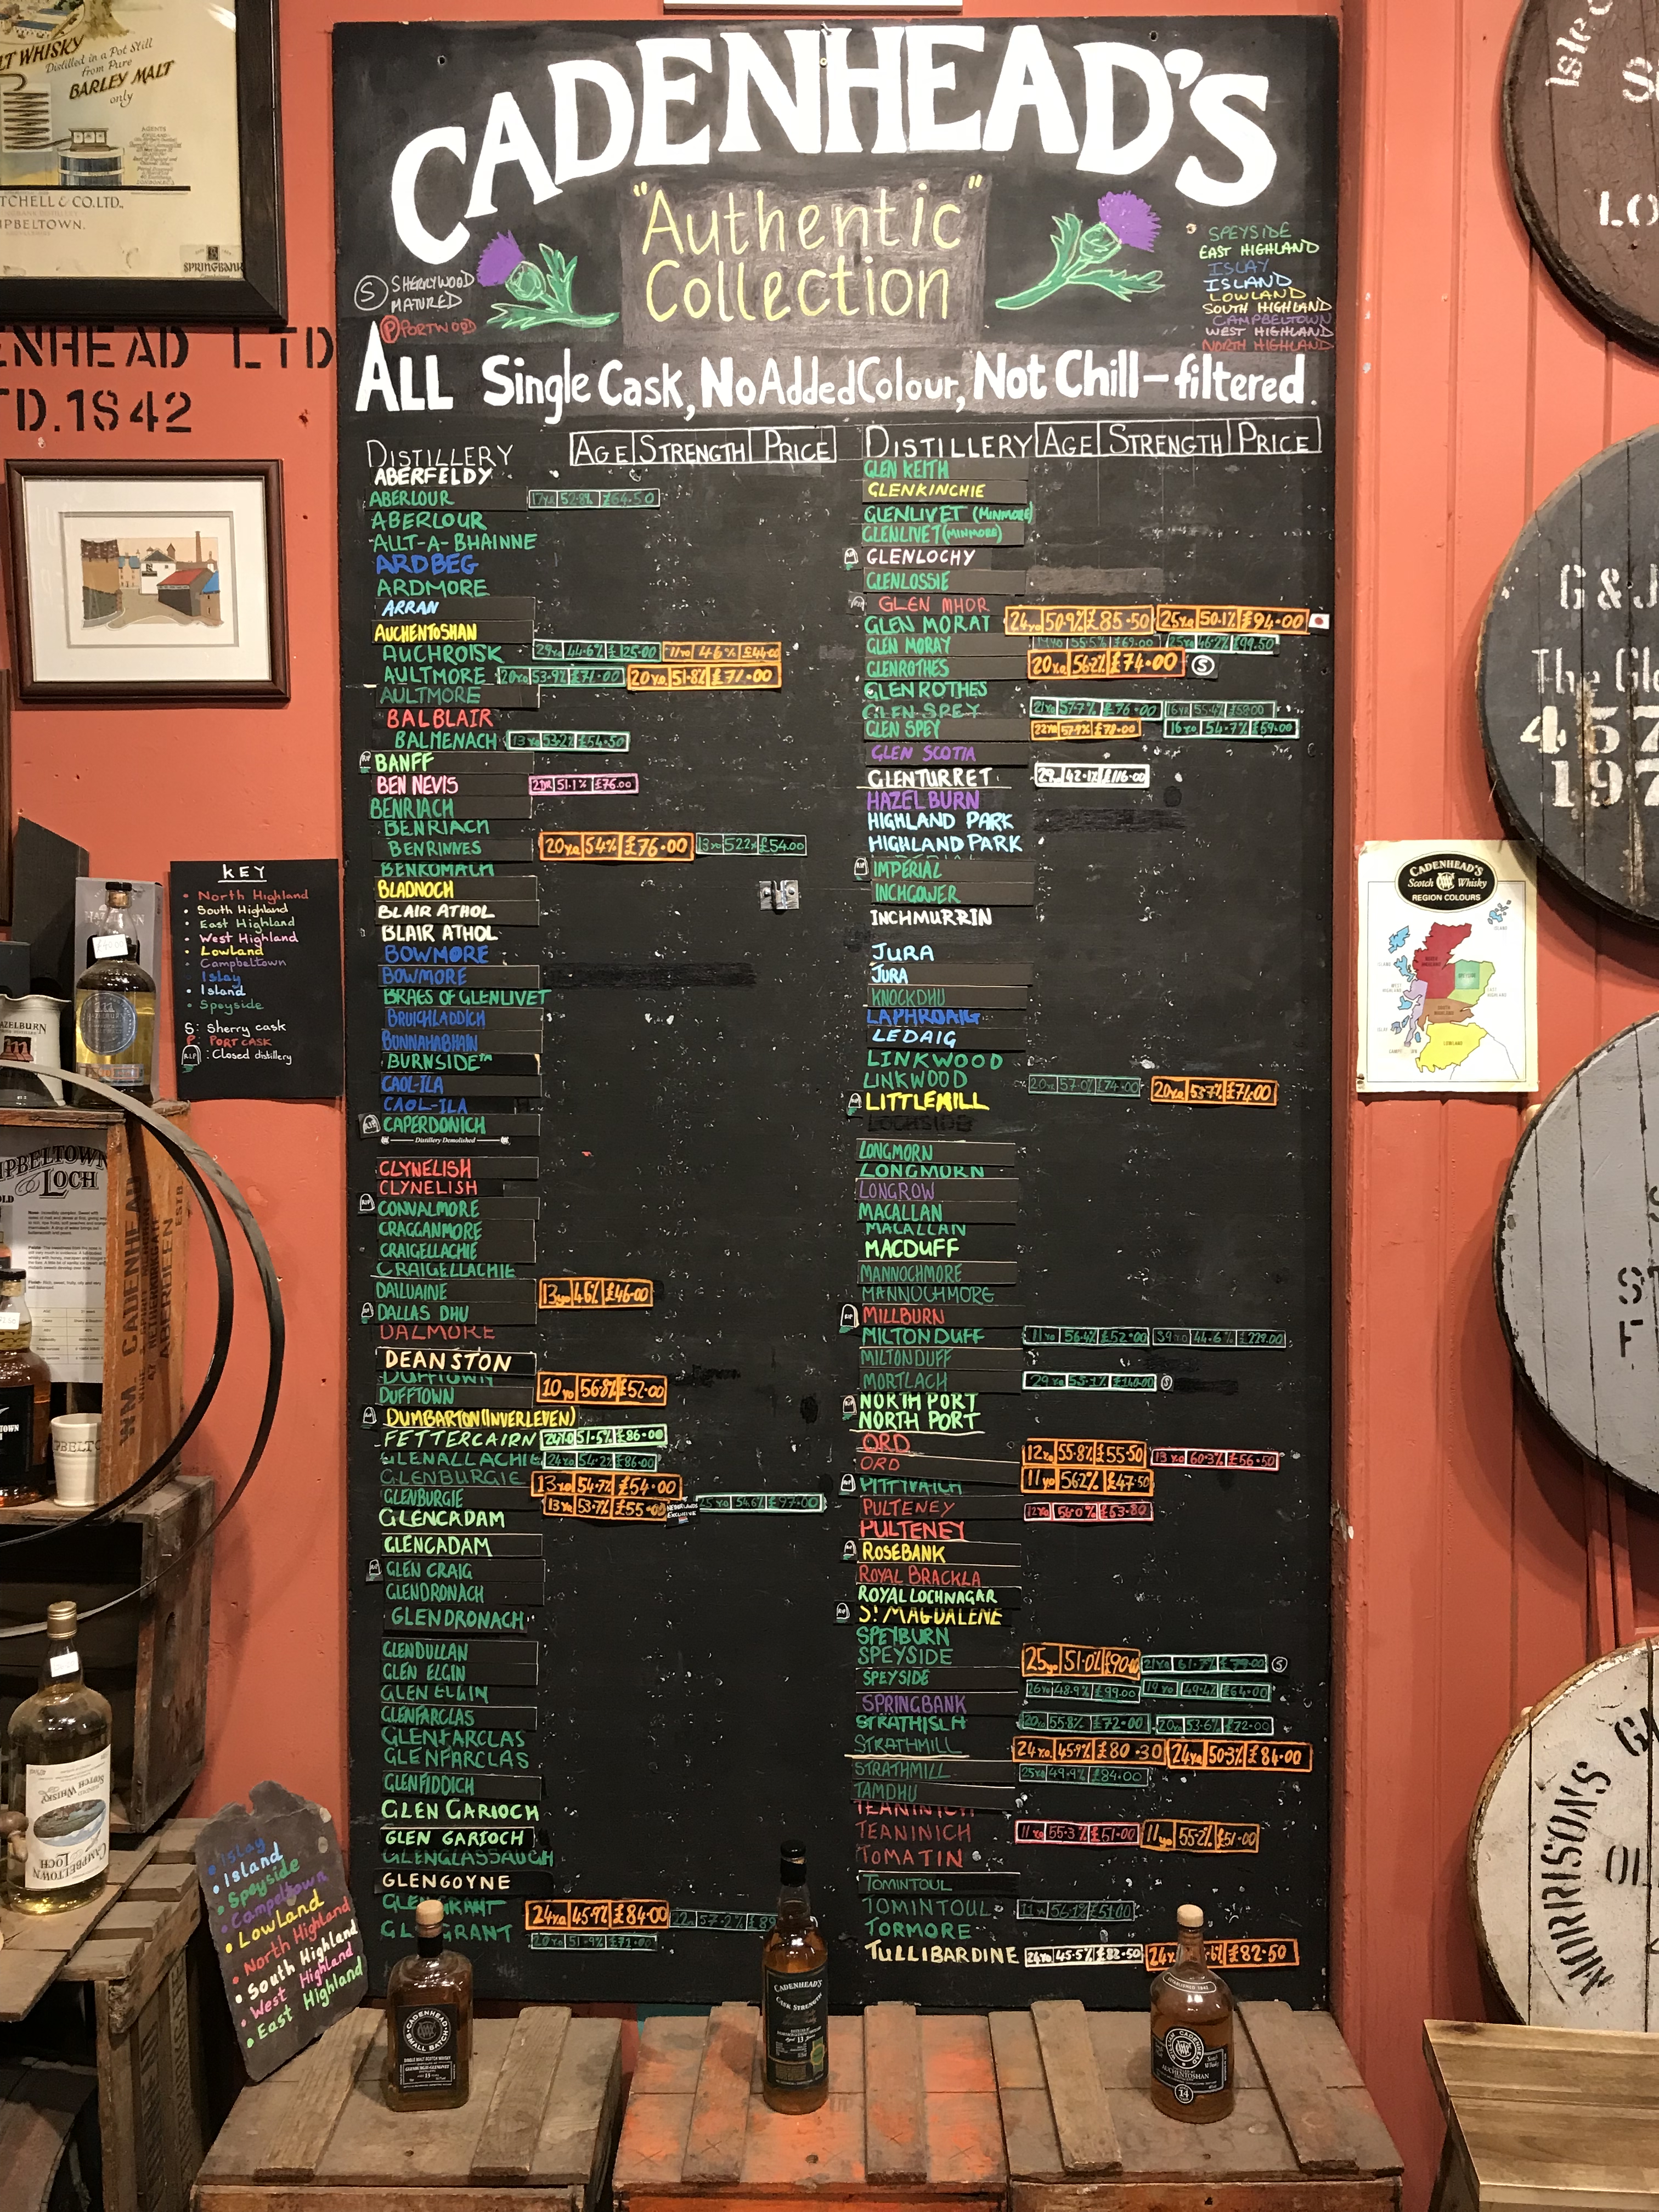 LT WHISKY
Distilled in a Pot Still
from Pure
BARLEY MALT
only
TCHELL & CO.LTD.,
PBELTOWN.
SPRINGBANK
ENHEAD LTD
TD.1842
CADENHEAD'S
"Authentic"
Collection
S SHERRYWOOD
MATURED
P PORTWOOD
SPEYSIDE
EAST HIGHLAND
ISLAY
ISLAND
LOWLAND
SOUTH HIGHLAND
CAMPBELTOWN
WEST HIGHLAND
NORTH HIGHLAND
ALL Single Cask, No Added Colour, Not Chill-filtered.
DISTILLERY AGE STRENGTH PRICE
ABERFELDY
ABERLOUR 17yo 52.8% £64.50
ABERLOUR
ALLT-A-BHAINNE
ARDBEG
ARDMORE
ARRAN
AUCHENTOSHAN
AUCHROISK 29yo 44.6% £125.00 11yo 46% £44.00
AULTMORE 20yo 53.9% £71.00 20y.o. 51.8% £71.00
AULTMORE
BALBLAIR
BALMENACH 13yo 53.2% £54.50
RIP BANFF
BEN NEVIS 51.1% £76.00
BENRIACH
BENRIACH
BENRINNES 20y.o. 54% £76.00 13yo 52.2% £54.00
BENROMACH
BLADNOCH
BLAIR ATHOL
BLAIR ATHOL
BOWMORE
BOWMORE
BRAES OF GLENLIVET
BRUICHLADDICH
BUNNAHABHAIN
BURNSIDE™
CAOL-ILA
CAOL-ILA
RIP CAPERDONICH
Distillery Demolished
CLYNELISH
CLYNELISH
RIP CONVALMORE
CRAGGANMORE
CRAIGELLACHIE
CRAIGELLACHIE
DAILUAINE 13yo 46% £46.00
RIP DALLAS DHU
DALMORE
DEANSTON
DUFFTOWN
DUFFTOWN 10yo 56.8% £52.00
RIP DUMBARTON (INVERLEVEN)
FETTERCAIRN 24Y.O 51.5% £86.00
GLENALLACHIE 24yo 54.2% £86.00
GLENBURGIE 13yo 54.7% £54.00
GLENBURGIE 13yo 53.7% £55.00 NETHERLANDS EXCLUSIVE 25yo 54.6% £97.00
GLENCADAM
GLENCADAM
RIP GLEN CRAIG
GLENDRONACH
GLENDRONACH
GLENDULLAN
GLEN ELGIN
GLEN ELGIN
GLENFARCLAS
GLENFARCLAS
GLENFARCLAS
GLENFIDDICH
GLEN GARIOCH
GLEN GARIOCH
GLENGLASSAUGH
GLENGOYNE
GLEN GRANT 24y.o 45.9% £84.00 57.2% £89
GRANT 20yo 51.9% £71.00
DISTILLERY AGE STRENGTH PRICE
GLEN KEITH
GLENKINCHIE
GLENLIVET (MINMORE)
GLENLIVET (MINMORE)
RIP GLENLOCHY
GLENLOSSIE
RIP GLEN MHOR
GLEN MORAY 24yo 50.9% £85.50 25yo 50.1% £94.00
GLEN MORAY 55.5% £69.00 25yo 46.2% £99.50
GLENROTHES 20y.o. 56.2% £74.00 S
GLENROTHES
GLEN SPEY 21yo 57.7% £76.00 16yo 55.4% £59.00
GLEN SPEY 22yo 57.9% £78.00 16yo 54.7% £59.00
GLEN SCOTIA
GLENTURRET 29 42.1% £116.00
HAZELBURN
HIGHLAND PARK
HIGHLAND PARK
RIP IMPERIAL
INCHGOWER
INCHMURRIN
JURA
JURA
KNOCKDHU
LAPHROAIG
LEDAIG
LINKWOOD
LINKWOOD 20yo 57.0% £74.00 20y.o. 53.7% £74.00
RIP LITTLEMILL
LOCHSIDE
LONGMORN
LONGMORN
LONGROW
MACALLAN
MACALLAN
MACDUFF
MANNOCHMORE
MANNOCHMORE
RIP MILLBURN
MILTONDUFF 11yo 56.4% £52.00 39yo 44.6% £229.00
MILTONDUFF
MORTLACH 29yo 55.1% £140.00 S
RIP NORTH PORT
NORTH PORT
ORD 12yo 55.8% £55.50 13yo 60.3% £56.50
ORD 11yo 56.2% £47.50
RIP PITTYVAICH
PULTENEY 12yo 56.0% £53.80
PULTENEY
RIP ROSEBANK
ROYAL BRACKLA
ROYAL LOCHNAGAR
RIP ST MAGDALENE
SPEYBURN
SPEYSIDE 25yo 51.0% £90.00 21yo 61.7% £79.00 S
SPEYSIDE 26yo 48.9% £99.00 19yo 49.4% £64.00
SPRINGBANK
STRATHISLA 20yo 55.8% £72.00 20yo 53.6% £72.00
STRATHMILL 24y.o. 45.9% £80.30 24y.o. 50.3% £84.00
STRATHMILL 25yo 49.9% £84.00
TAMDHU
TEANINICH
TEANINICH 11yo 55.3% £51.00 11yo 55.2% £51.00
TOMATIN
TOMINTOUL
TOMINTOUL 11yo 56.1% £51.00
TORMORE
TULLIBARDINE 24yo 45.5% £82.50 24y £82.50
KEY
North Highland
South Highland
East Highland
West Highland
Lowland
Campbeltown
Islay
Island
Speyside
S: Sherry cask
P: PORT CASK
RIP: Closed distillery
AZELBURN
PBELTOWN
LOCH
WM. CADENHEAD
ABERDEEN
ESTB.
PBELTO
CAMPBELTOWN
LOCH
Blended
SCOTCH WHISKY
Islay
Island
Speyside
Campbeltown
Lowland
North Highland
South Highland
West Highland
East Highland
CADENHEAD'S
SMALL BATCH
CADENHEAD'S
CASK STRENGTH
Aged 13 Years
WILLIAM CADENHEAD
AUCHENTOSHAN
14
CADENHEAD'S
Scotch Whisky
REGION COLOURS
LO
G & J
The Gle
457
197
S
ST
F
MORRISON'S
OL